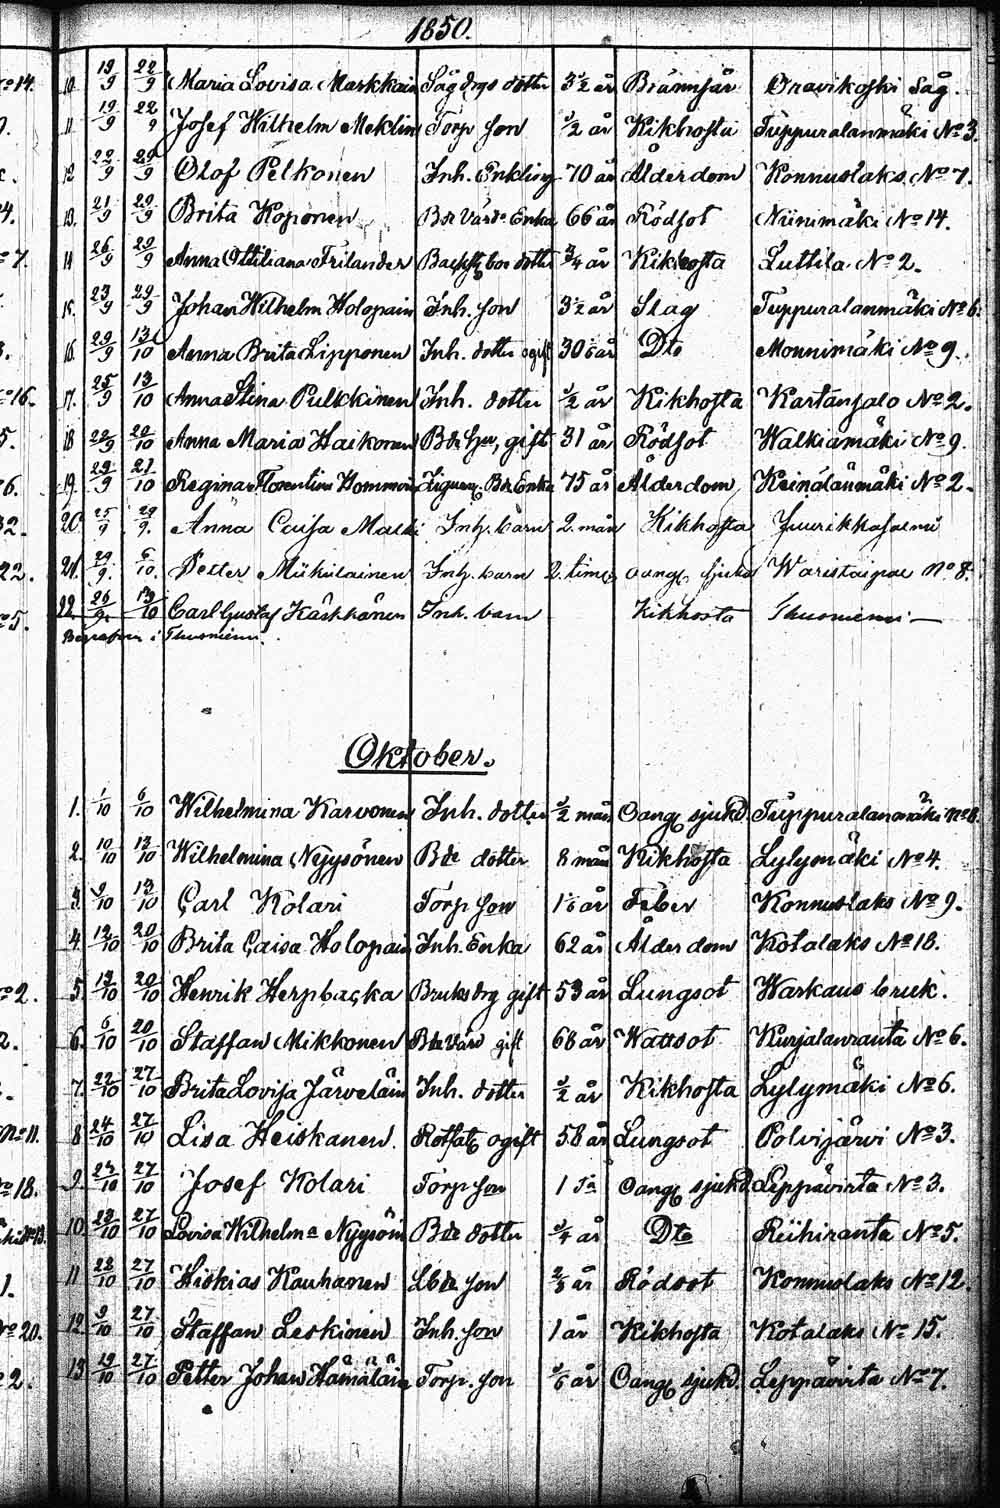 1850.
10. 19/9 22/9 Maria Lovisa Markkain Såg drgs dotter 3½ år Brännsår Oravikoski Såg.
11. 19/9 22/9 Josef Wilhelm Meklin Torp son ½ år Kikhosta Tuppuralanmäki No 3.
12. 22/9 29/9 Olof Pelkonen Inh. Enkling 70 år Ålderdom Konnuslaks No 7.
13. 21/9 29/9 Brita Koponen Bde Värds Enka 66 år Rödsot Niinimäki No 14.
14 26/9 29/9 Anna Ottiliana Frilander dotter ¾ år Kikhosta Luttila No 2.
15. 23/9 29/9 Johan Wilhelm Holopain Inh. son 3½ år Slag Tuppuralanmäki No 6.
16. 29/9 13/10 Anna Brita Lipponen Inh. dotter ogift 30 år Dto Monnimäki No 9.
17. 25/9 13/10 Anna Stina Pulkkinen Inh. dotter ½ år Kikhosta Kartansalo No 2.
18 22/9 20/10 Anna Maria Haikonen Bde hu, gift 31 år Rödsot Walkiamäki No 9.
19. 29/9 21/10 Regina Florentina Hommoin Bde Enka 75 år Ålderdom Keinälänmäki No 2.
20. 25/9 29/9. Anna Caisa Maski Inh. barn 2. mån Kikhosta Juurikkasalmi
21. 29/9. 6/10. Petter Miikulainen Inh. barn 2. tim. oang. sjukd Waristaipal No 8.
22. 26/9. 13/10 Carl Gustaf Kärkkänen Inh. barn Kikhosta Thusniemi —
Begraven i Thusniemi.
Oktober.
1. 1/10 6/10 Wilhelmina Karvonen Inh. dotter ½ mån Oang. sjukd. Tuppuralanmäki No 8.
2. 10/10 13/10 Wilhelmina Nyysönen Bde dotter 8 mån Kikhosta Lylymäki No 4.
3. 9/10 13/10 Carl Kolari Torp son år Feber Konnuslaks No 9.
4. 12/10 20/10 Brita Caisa Holopain Inh. Enka 62 år Ålderdom Kotalaks No 18.
5 13/10 20/10 Henrik Herpbacka Bruksdrg gift 53 år Lungsot Warkaus bruk.
6. 6/10 20/10 Staffan Mikkonen Bde Värd gift 68 år Wattsot Kurjalanranta No 6.
7. 22/10 27/10 Brita Lovisa Järveläin Inh. dotter ½ år Kikhosta Lylymäki No 6.
8 24/10 27/10 Lisa Heiskanen. Rotfat. ogift 58 år Lungsot Polvijärvi No 3.
9. 24/10 27/10 Josef Kolari Torp son 1 Oang. sjukd. Leppävirta No 3.
10. 23/10 27/10 Lovisa Wilhelma Nyysöin Bde dotter ¾ år Dto Riihiranta No 5.
11 22/10 27/10 Hiskias Kauhanen Lbde son år Rödsot Konnuslaks No 12.
12. 9/10 27/10 Staffan Leskinen Inh. son 1 år Kikhosta Kotalaks No 15.
13 19/10 27/10 Petter Johan Hämäläin Torp. son år Oang. sjukd. Leppävirta No 7.